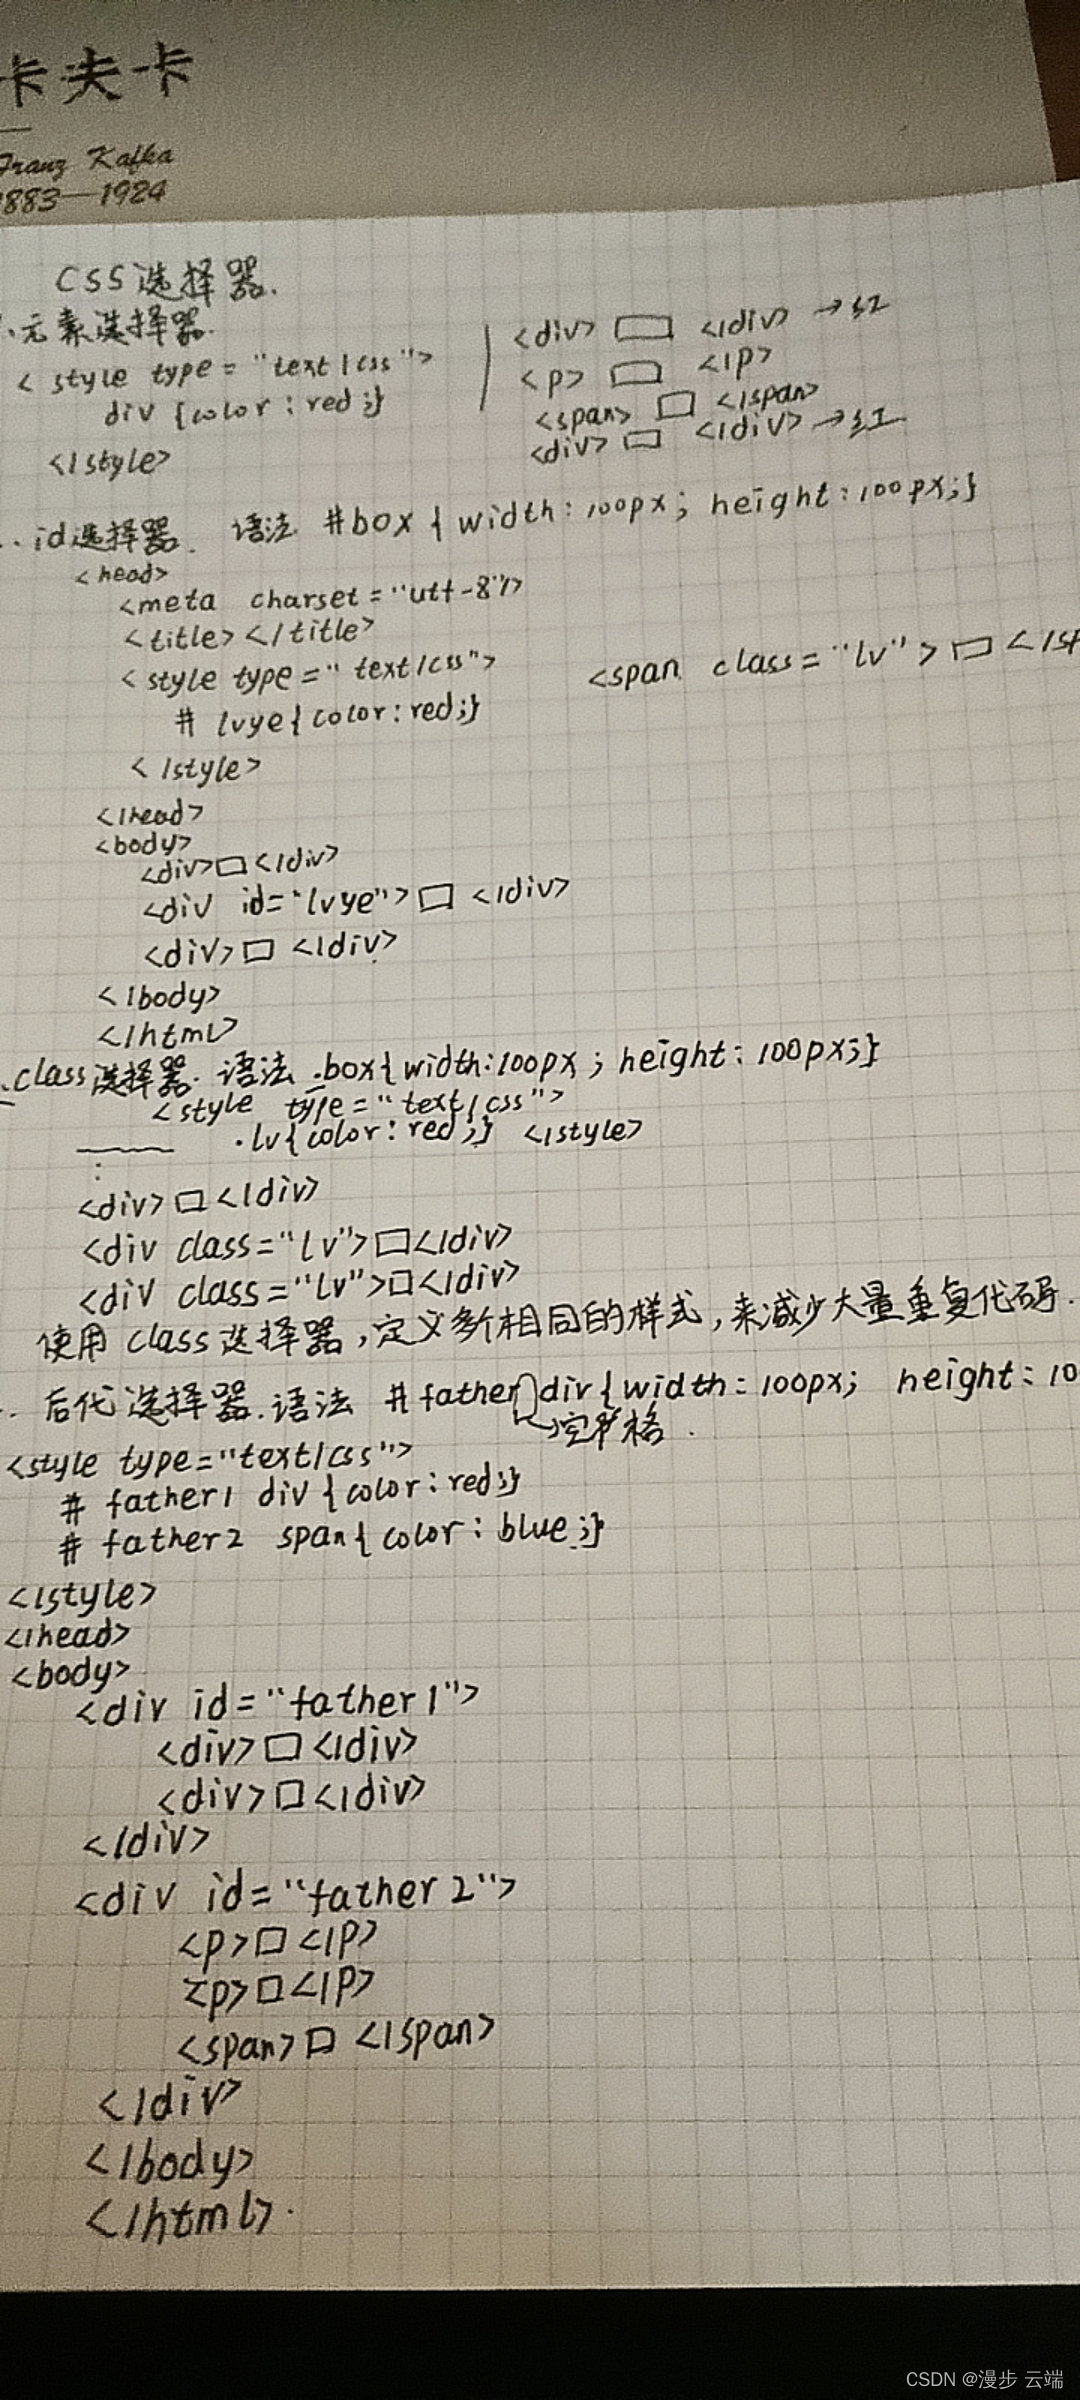 卡夫卡
Franz Kafka
1883—1924
CSS选择器.
元素选择器.
<style type="text/css">
div{color:red;}
</style>
<div>□</div>→红
<p>□</p>
<span>□</span>
<div>□</div>→红
id选择器. 语法 #box{width:100px; height:100px;}
<head>
<meta charset="utf-8"/>
<title></title>
<style type="text/css">
# lvye{color:red;}
</style>
<span class="lv">□</sp
</head>
<body>
<div>□</div>
<div id="lvye">□</div>
<div>□</div>
</body>
</html>
class选择器. 语法 .box{width:100px; height:100px;}
<style type="text/css">
.lv{color:red;} </style>
<div>□</div>
<div class="lv">□</div>
<div class="lv">□</div>
使用class选择器,定义多个相同的样式,来减少大量重复代码.
后代选择器.语法 #father div{width:100px; height:10
→空格.
<style type="text/css">
# father1 div{color:red;}
# father2 span{color:blue;}
</style>
</head>
<body>
<div id="father1">
<div>□</div>
<div>□</div>
</div>
<div id="father2">
<p>□</p>
<p>□</p>
<span>□</span>
</div>
</body>
</html>.
CSDN @漫步 云端